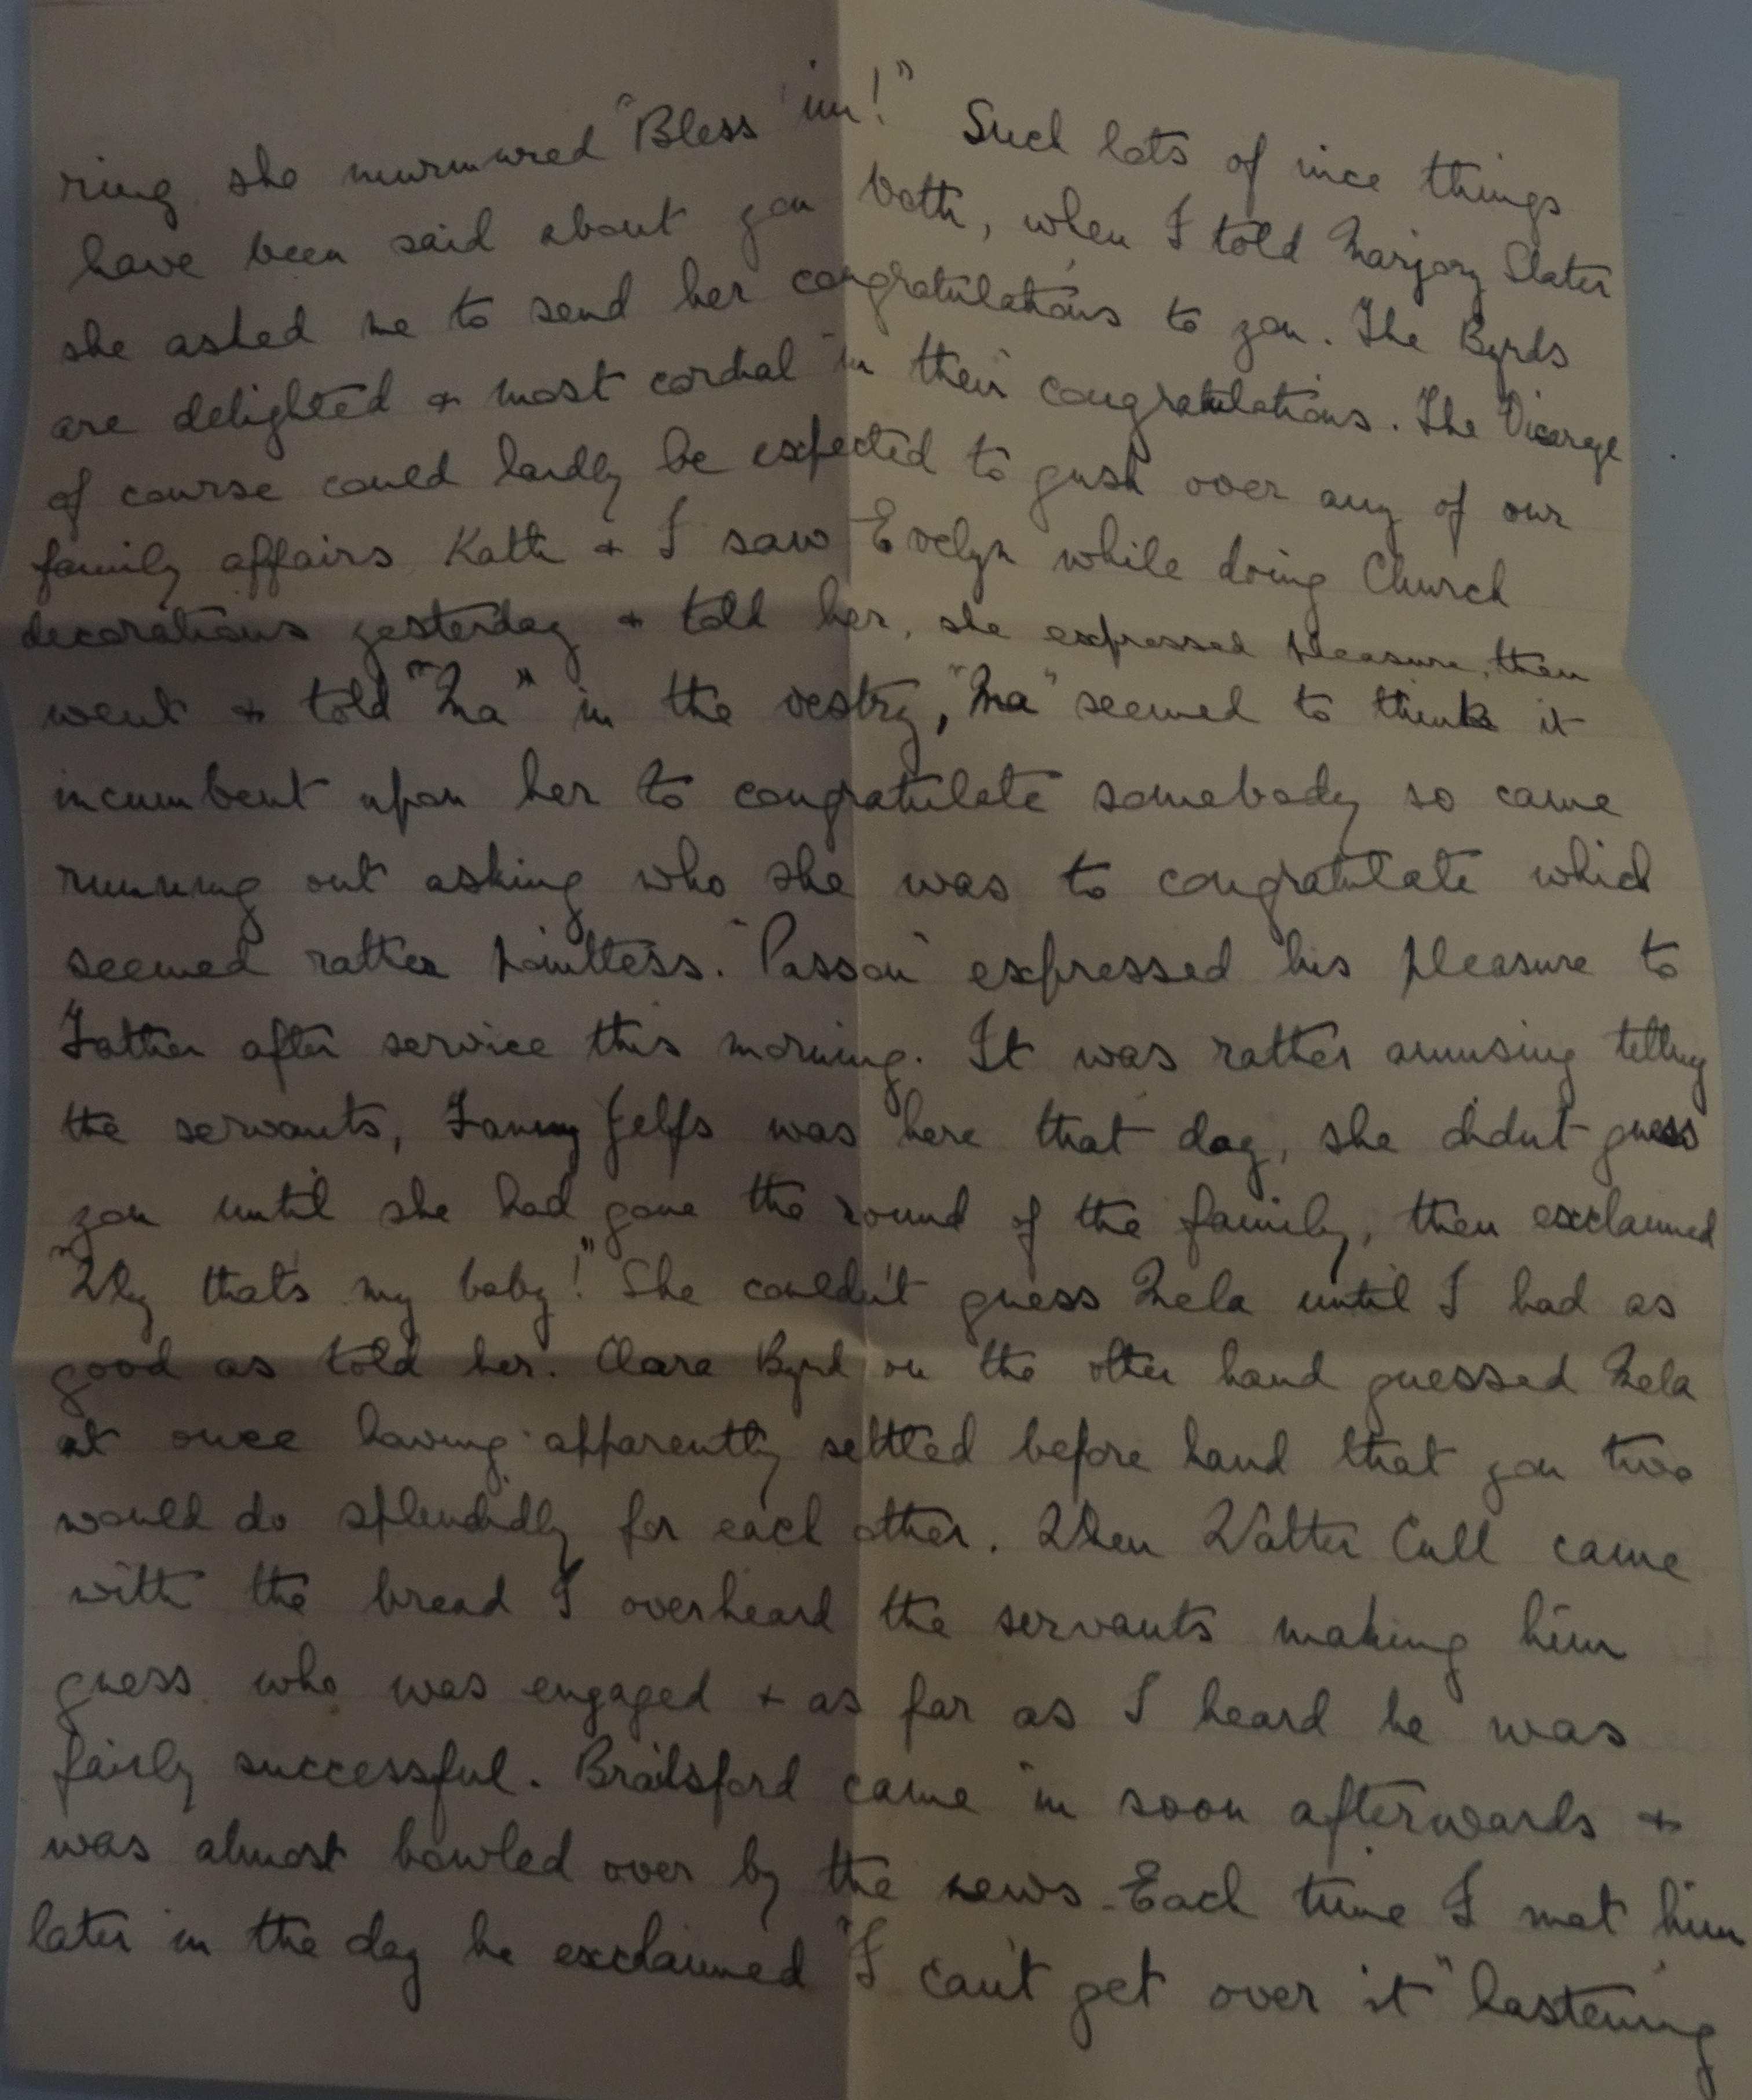 ring, she murmured "Bless 'im!" Such lots of nice things
have been said about you both, when I told Marjory Slater
she asked me to send her congratulations to you. The Byrds
are delighted & most cordial in their congratulations. The Vicarage
of course could hardly be expected to gush over any of our
family affairs Kath & I saw Evelyn while doing Church
decorations yesterday & told her, she expressed pleasure, then
went & told "Ma" in the vestry, "Ma" seemed to think it
incumbent upon her to congratulate somebody so came
running out asking who she was to congratulate which
seemed rather pointless. "Passon" expressed his pleasure to
Father after service this morning. It was rather amusing telling
the servants, Fanny Jelfs was here that day, she didn't guess
you until she had gone the round of the family, then exclaimed
"Why that's my baby!" She couldn't guess Mela until I had as
good as told her. Clara Byrd on the other hand guessed Mela
at once having apparently settled before hand that you two
would do splendidly for each other. When Walter Cull came
with the bread I overheard the servants making him
guess who was engaged & as far as I heard he was
fairly successful. Brailsford came in soon afterwards &
was almost bowled over by the news. Each time I met him
later in the day he exclaimed "I can't get over it" hastening